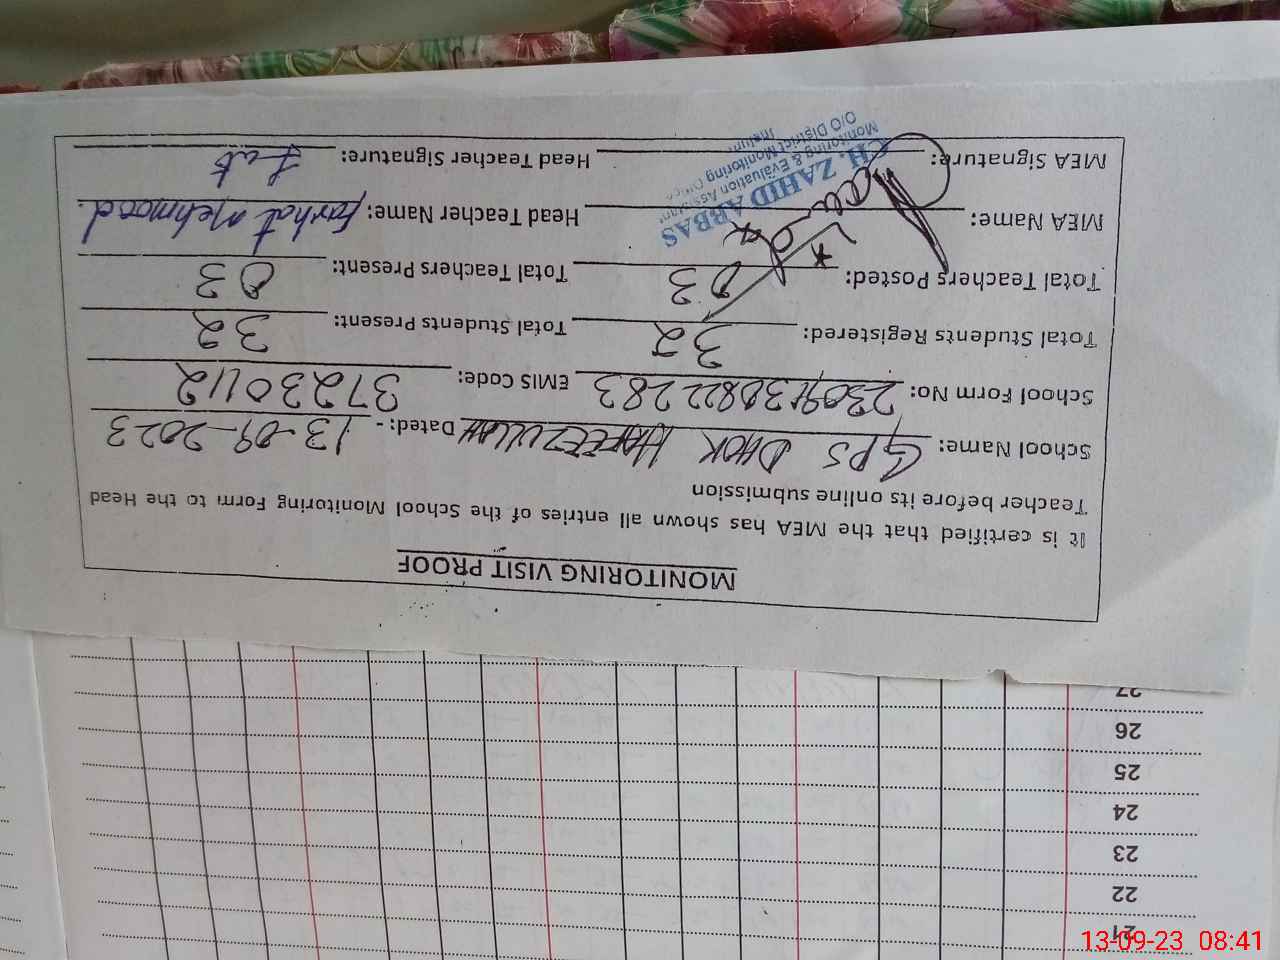 MONITORING VISIT PROOF
It is certified that the MEA has shown all entries of the School Monitoring Form to the Head
Teacher before its online submission
School Name: GPS DHOK HAFEEZULLAH Dated: - 13-09-2023
School Form No: EMIS Code: 37230112
Total Students Registered: 32 Total Students Present: 32
Total Teachers Posted: 03 Total Teachers Present: 03
MEA Name: Head Teacher Name: Farhat Mehmood.
MEA Signature: Head Teacher Signature:
CH. ZAHID ABBAS
Monitoring & Evaluation Assistant
O/O District Monitoring Officer
Jhelum
27
26
25
24
23
22
21
13-09-23 08:41